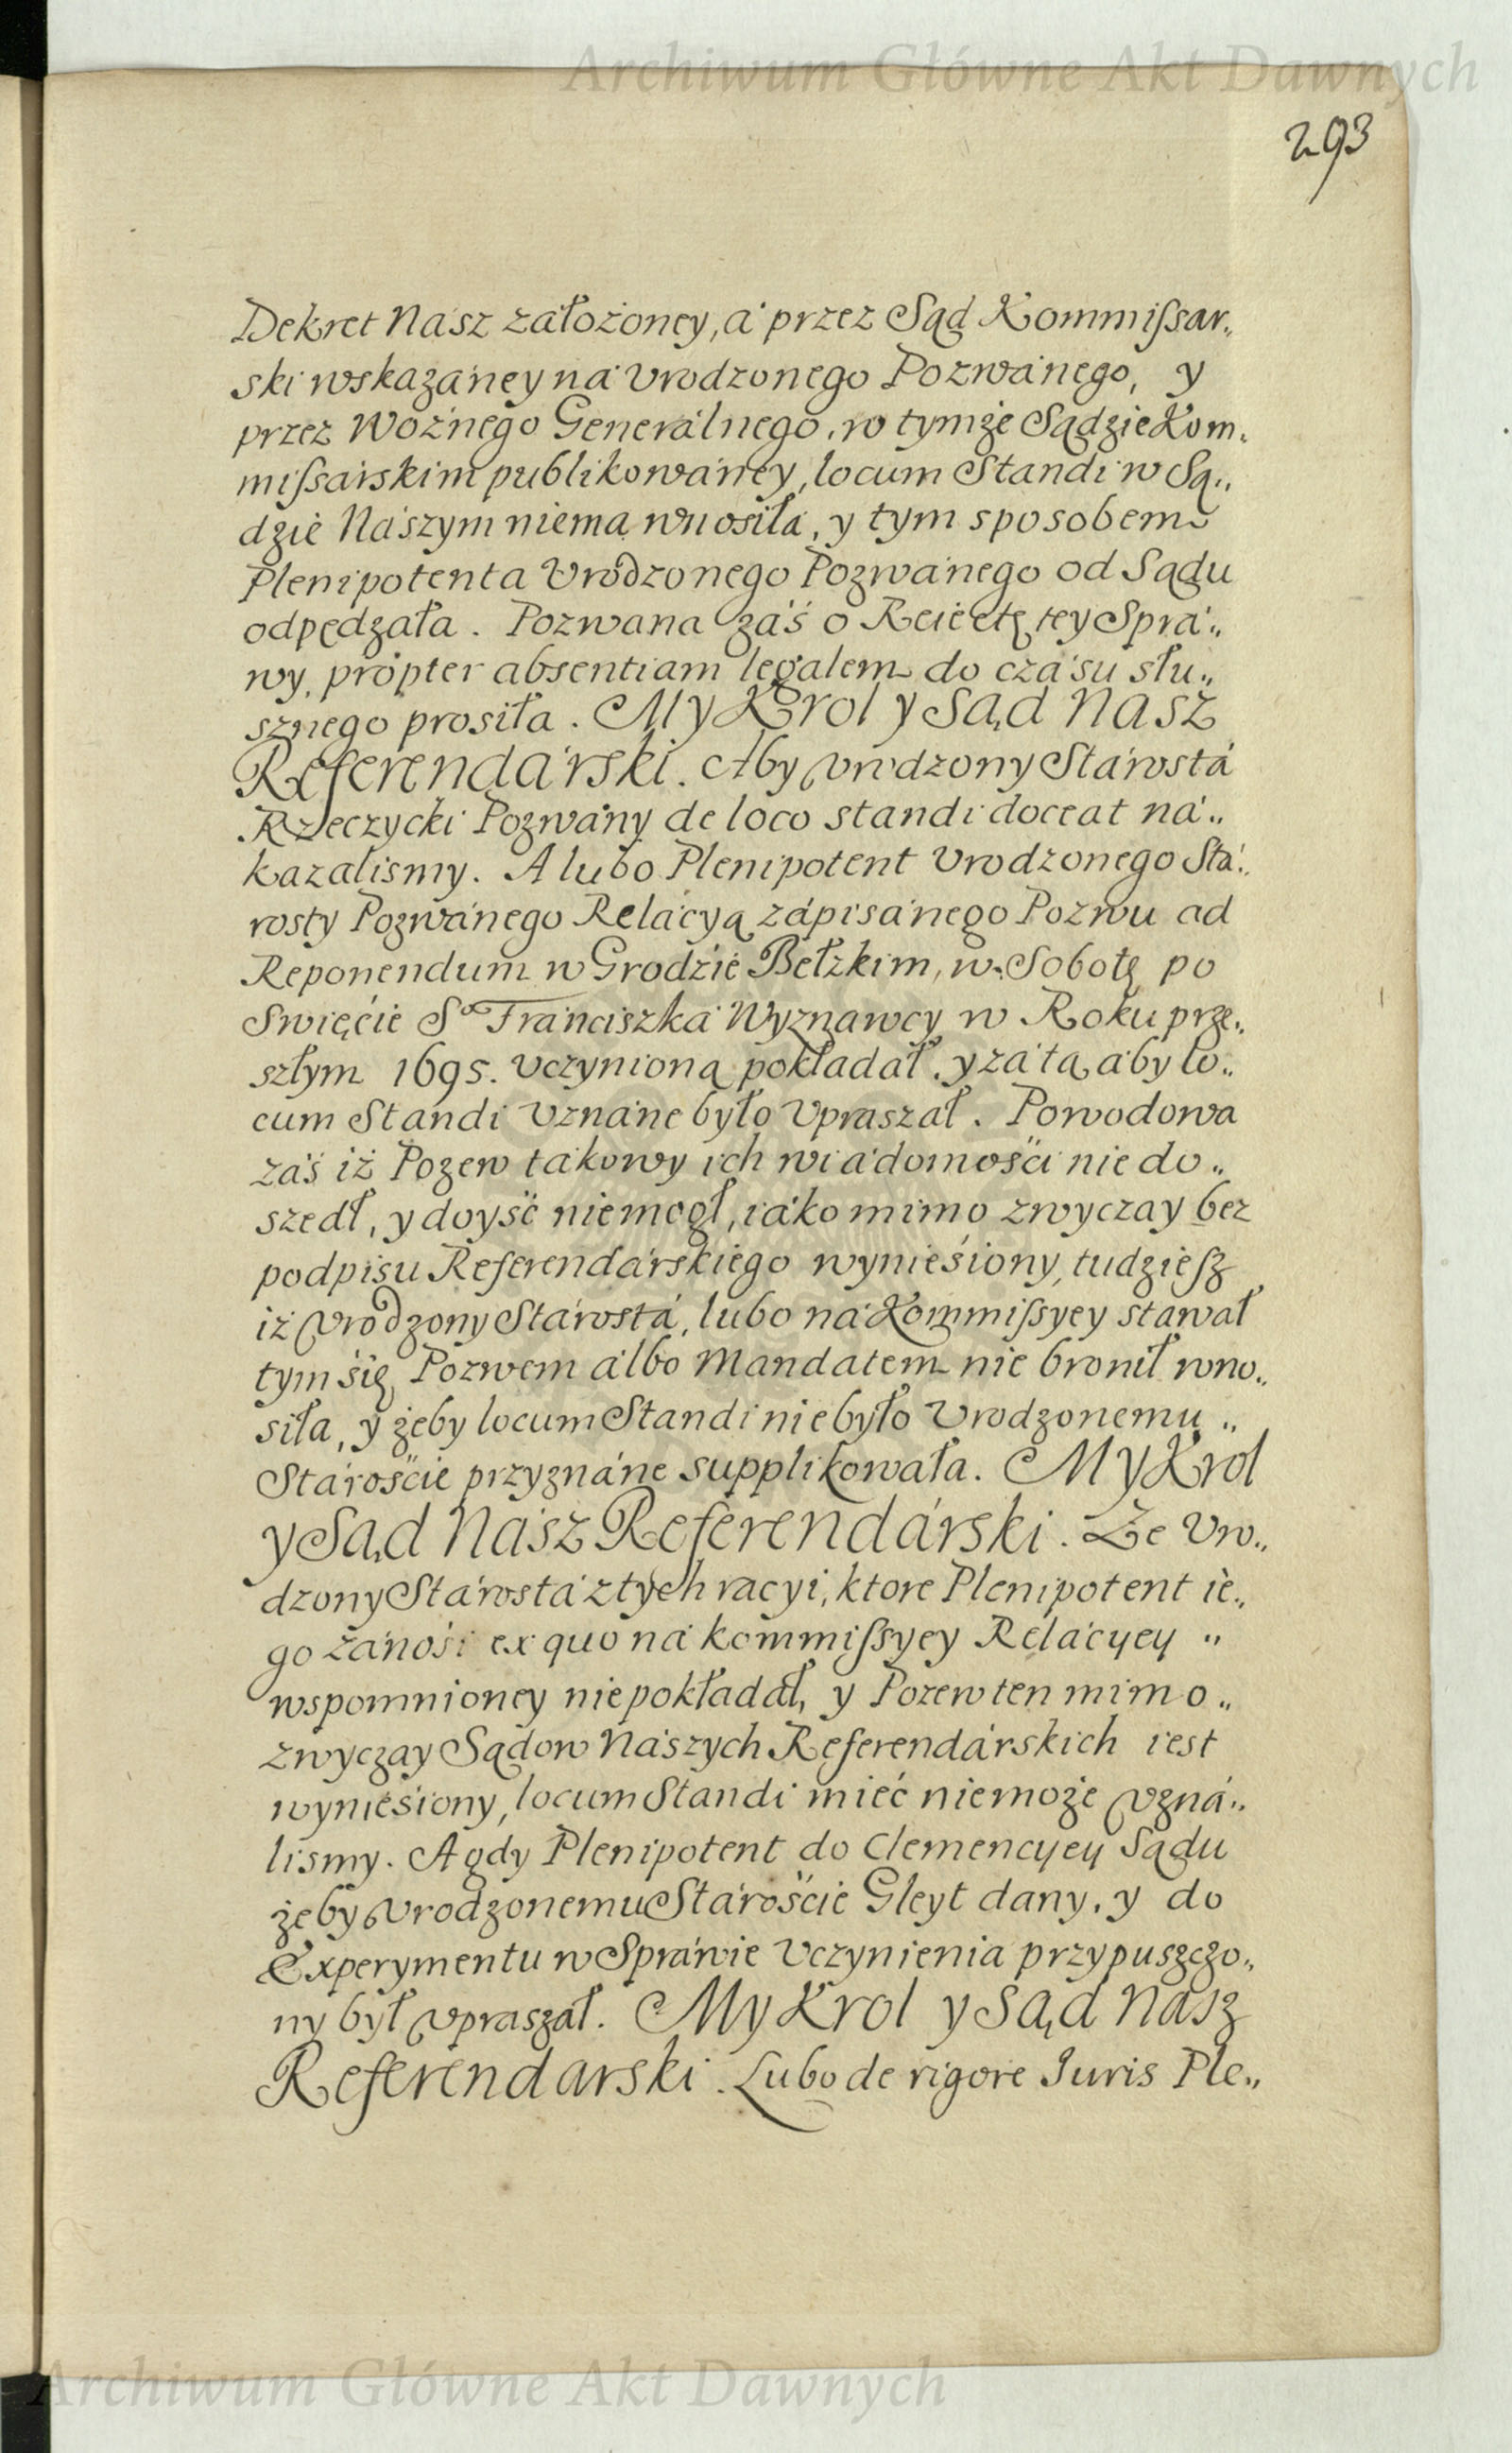 Archiwum Główne Akt Dawnych
293
Dekret Nász záłożoney, á przez Sąd Kommiſsar„
ski wskazáney ná Vrodzonego Pozwánego, y
przez Woźnego Generálnego, w tymże Sądzie Kom„
miſsárskim publikowáney, locum Standi w Są„
dzie Nászym niema wnosiłá, y tym sposobem
Plenipotenta Vrodzonego Pozwánego od Sądu
odpędzała. Pozwana záś o Reiectę tey Sprá„
wy, propter absentiam legalem do czásu słu„
sznego prosiła. My Krol y Sąd Nasz
Referendárski. Aby Vrodzony Stárostá
Rzeczycki Pozwány de loco standi doceat ná„
kazalismy. A lubo Plenipotent Vrodzonego Stá„
rosty Pozwánego Relácyą zápisánego Pozwu ad
Reponendum w Grodzie Bełzkim, w Sobotę po
Swięćie Sº Fránciszká Wyznawcy w Roku prze„
szłym 1695. Vczynioną pokładał, y zá tą, áby lo„
cum Standi Vznáne było Vpraszał. Powodowa
záś iż Pozew tákowy ich wiádomośći nie do„
szedł, y doyść niemogł, iáko mimo zwyczay bez
podpisu Referendárskiego wynieśiony, tudzieſz
iż Vrodzony Stárostá, lubo ná Kommiſsyey stawał
tym śię Pozwem álbo Mandatem nie bronił wno„
siła, y żeby locum Standi niebyło Vrodzonemu „
Stárośćie przyznáne supplikowała. My Krol
y Sąd Nász Referendárski. Że Vro„
dzony Stárostá z tych racyi, ktore Plenipotent ie„
go zánośi ex quo ná kommiſsyey Relácyey „
wspomnioney niepokładał, y Pozew ten mimo „
zwyczay Sądow Nászych Referendárskich iest
wynieśiony, locum Standi mieć niemoże Vzná„
lismy. A gdy Plenipotent do Clemencyey Sądu
żeby Vrodzonemu Stárośćie Gleyt dany, y do
Experymentu w Spráwie Vczynienia przypuszczo„
ny był Vpraszał. My Krol y Sąd Nasz
Referendarski. Lubo de rigore Iuris Ple„
Archiwum Główne Akt Dawnych